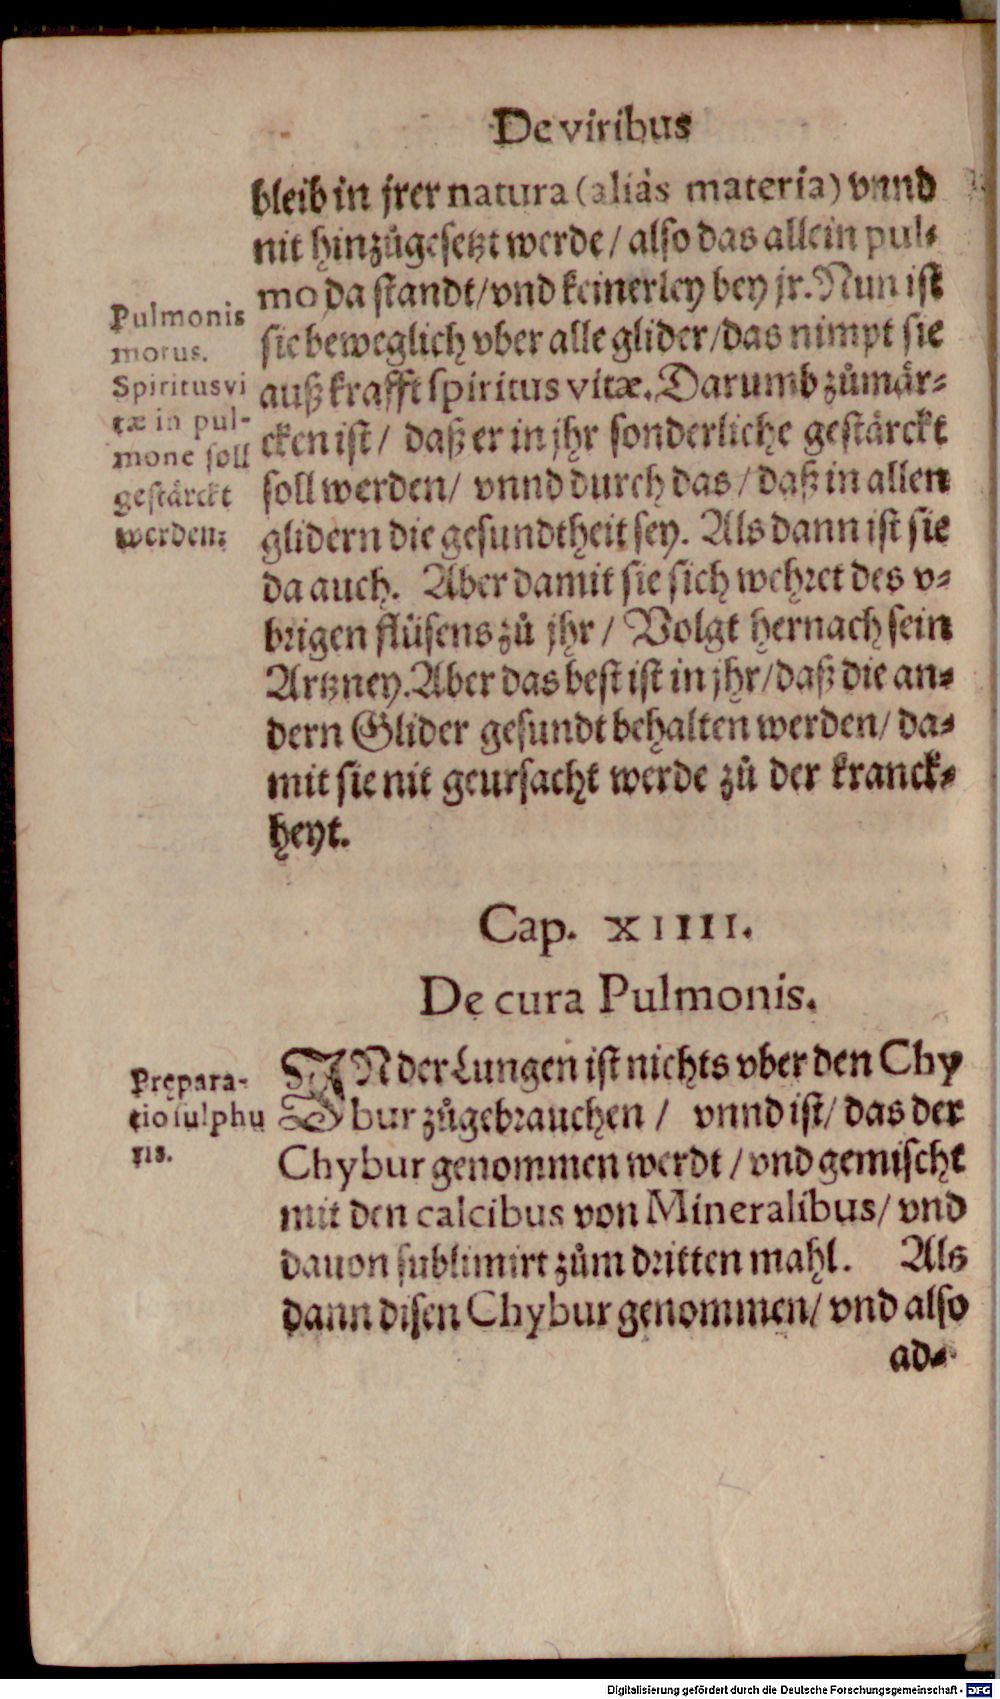 De viribus
bleib in jrer natura (aliàs materia) vnnd
nit hinzůgesetzt werde / also das allein pul-
mo da standt / vnd keinerley bey jr. Nun ist
sie beweglich vber alle glider / das nimpt sie
auß krafft spiritus vitæ. Darumb zůmär-
cken ist / daß er in jhr sonderliche gestärckt
soll werden / vnnd durch das / daß in allen
glidern die gesundtheit sey. Als dann ist sie
da auch. Aber damit sie sich wehret des v-
brigen flüsens zů jhr / Volgt hernach sein
Artzney. Aber das best ist in jhr / daß die an-
dern Glider gesundt behalten werden / da-
mit sie nit geursacht werde zů der kranck-
heyt.
Pulmonis
motus.
Spiritus vi
tæ in pul-
mone soll
gestärckt
werden.
Cap. XIIII.
De cura Pulmonis.
IN der Lungen ist nichts vber den Chy
bur zůgebrauchen / vnnd ist / das der
Chybur genommen werdt / vnd gemischt
mit den calcibus von Mineralibus / vnd
dauon sublimirt zům dritten mahl. Als
dann disen Chybur genommen / vnd also
ad-
Prępara-
tio sulphu
ris.
Digitalisierung gefördert durch die Deutsche Forschungsgemeinschaft - DFG